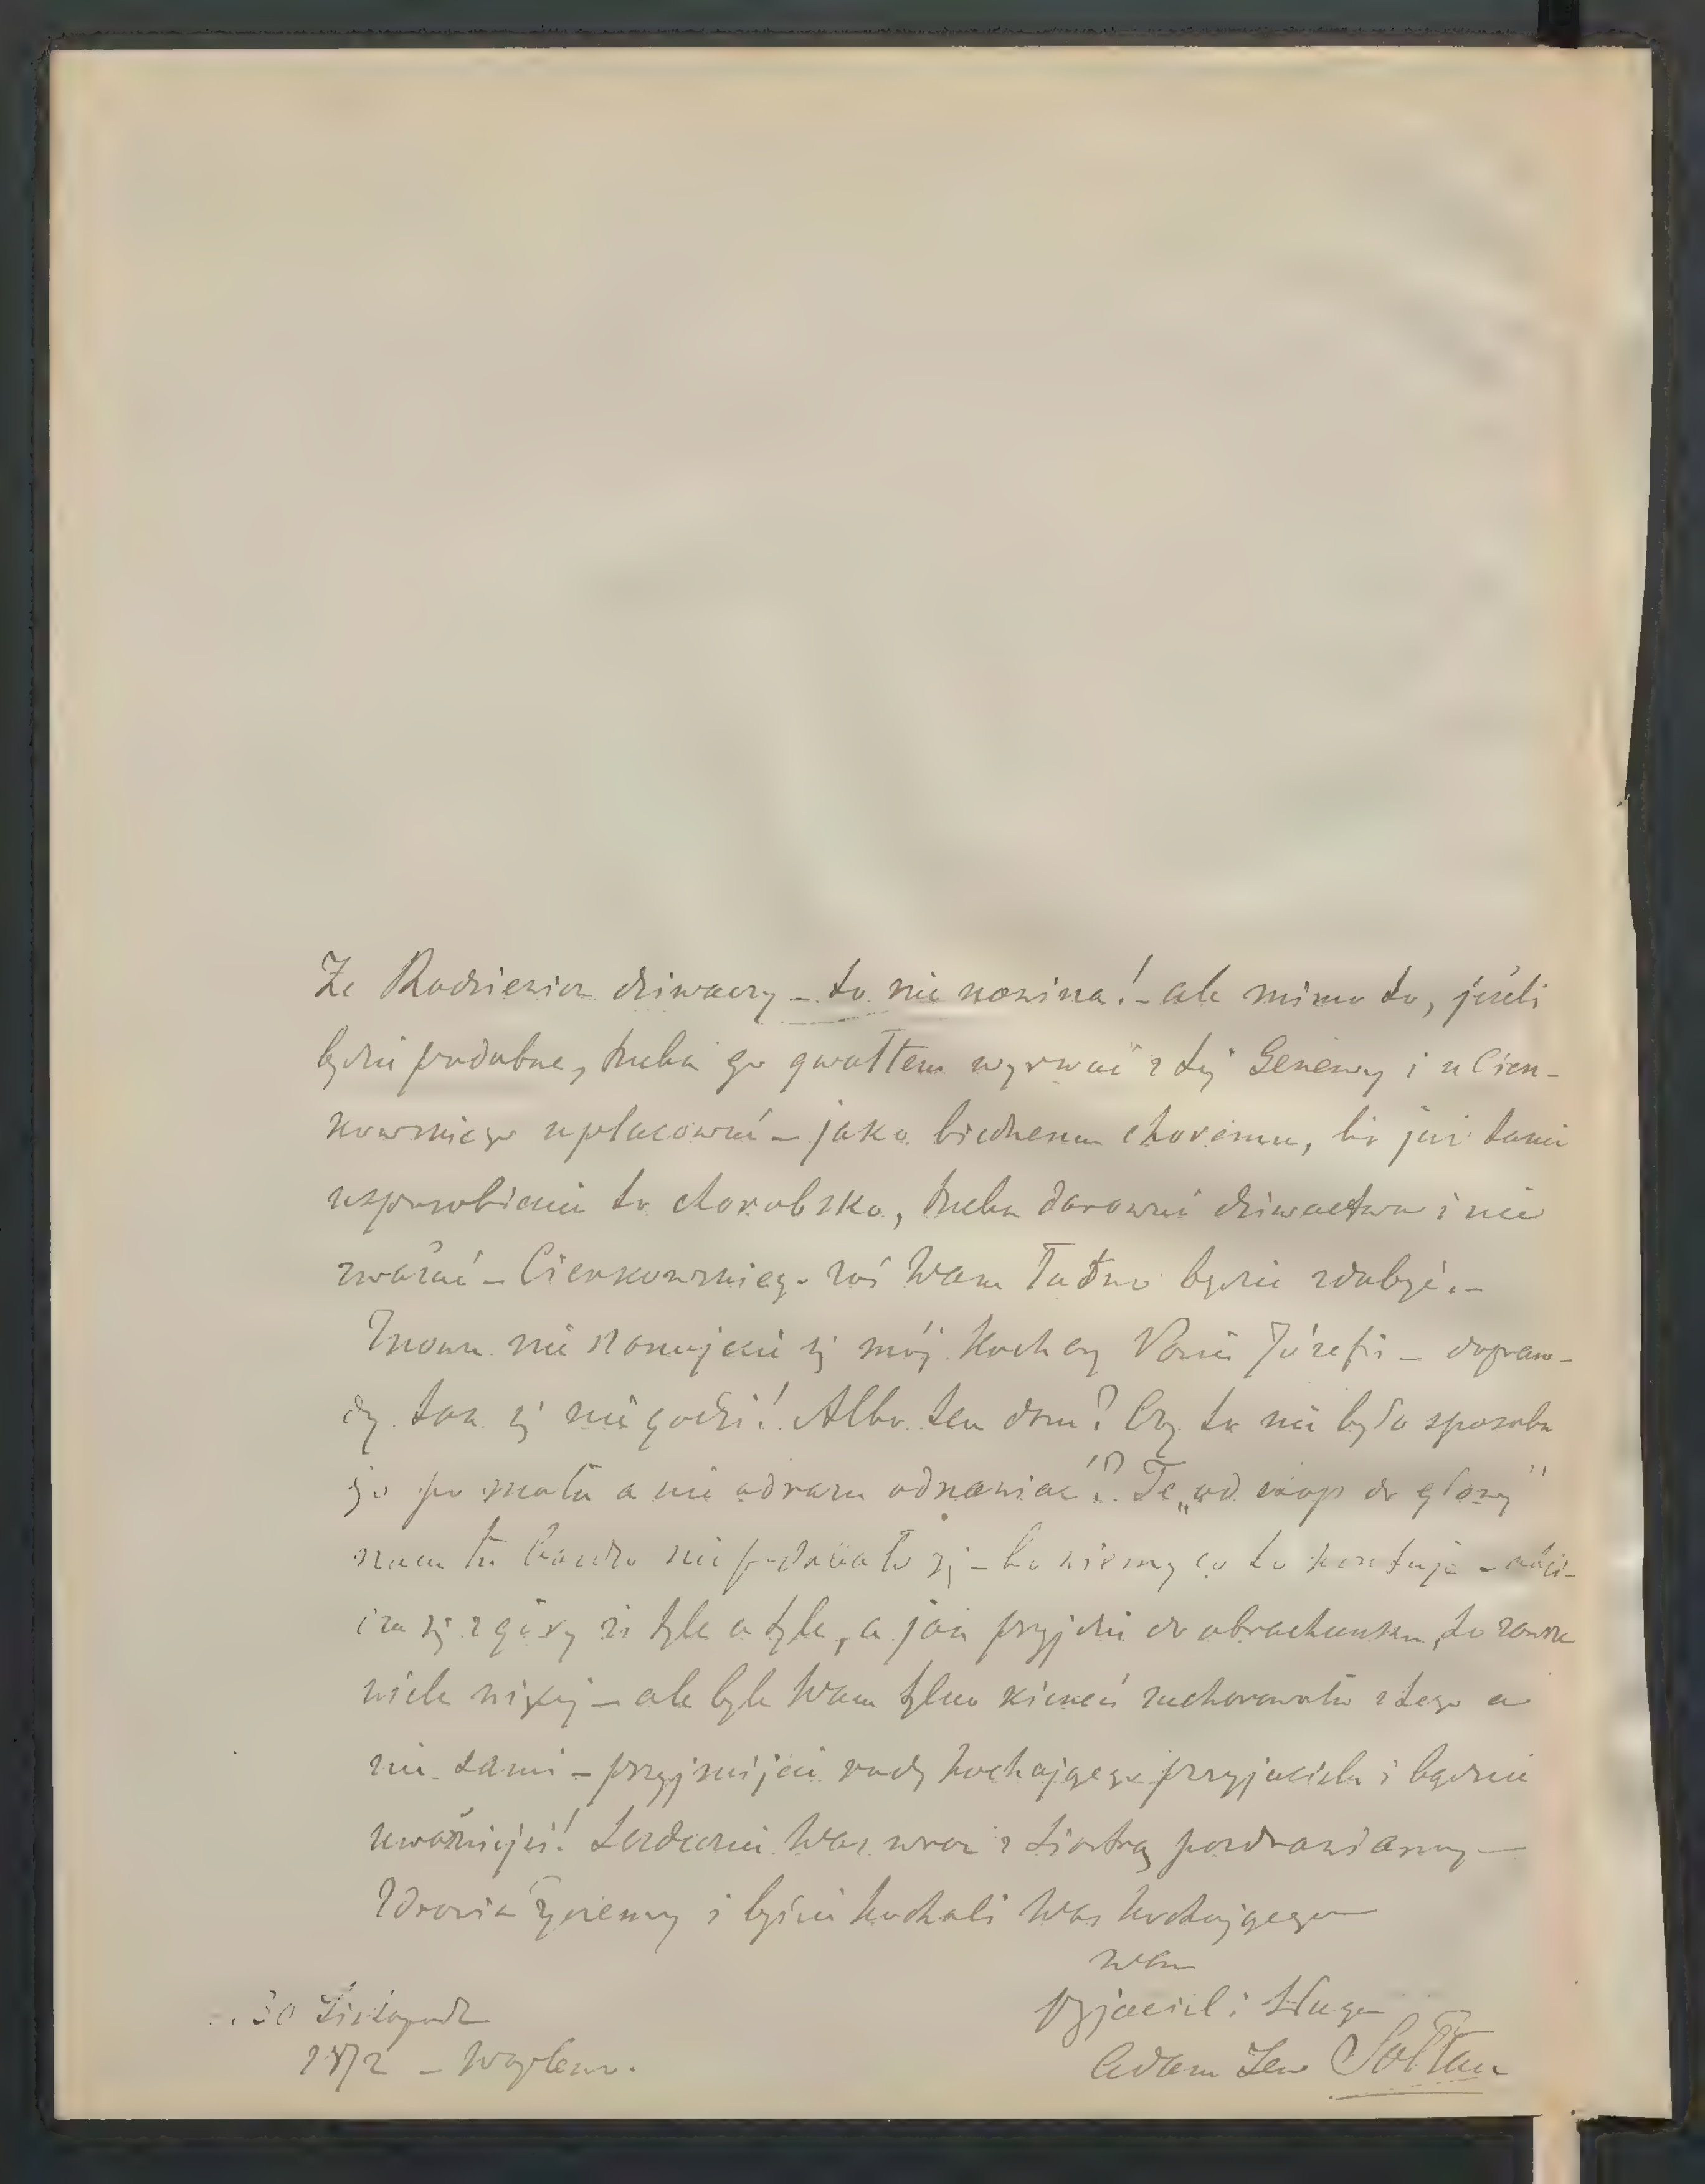 Że Radziewicz dziwaczy – to nie nowina! – ale mimo to, jeśli
będzie podobne, trzeba go gwałtem wyrwać z téj Genewy i u Cien-
kowskiego uplacować – jako biednemu choremu, bo już takie
usposobienie to chorobsko, trzeba darować dziwactwa i nie
zważać – Cienkowskiego zaś Wam łatwo będzie zdobyć. –
Znowu nie szanujecie się mój kochany Panie Józefie – dopraw-
dy tak się nie godzi! Albo ten dom? Czy to nie było sposobu
go po mału a nie odrazu odnawiać!? Te „od stóp do głowy"
nam tu bardzo nie podobało się – bo wiemy co to kosztuje –
się z góry że tyle a tyle, a jak przyjdzie do obrachunku, to zawsze
wiele więcéj – ale byle Wam tylko zachorowało z tego a
nie sami – przyjmijcie radę kochającego przyjaciela i bądźcie
uważniejsi! Serdecznie Was wraz z Siostrą pozdrawiamy –
Zdrowia życzemy i byście kochali Was kochającego
Wam
przyjaciel i sługa
Adam Lew Sołtan
30 Listopada
1872 –